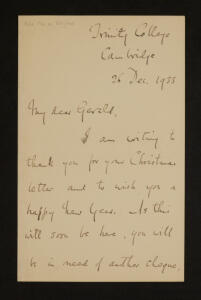 Trinity College
Cambridge
26 Dec. 1955
My dear Gerald,
I am writing to
thank you for your Christmas
letter and to wish you a
happy New Year. As this
will soon be here, you will
be in need of another cheque,